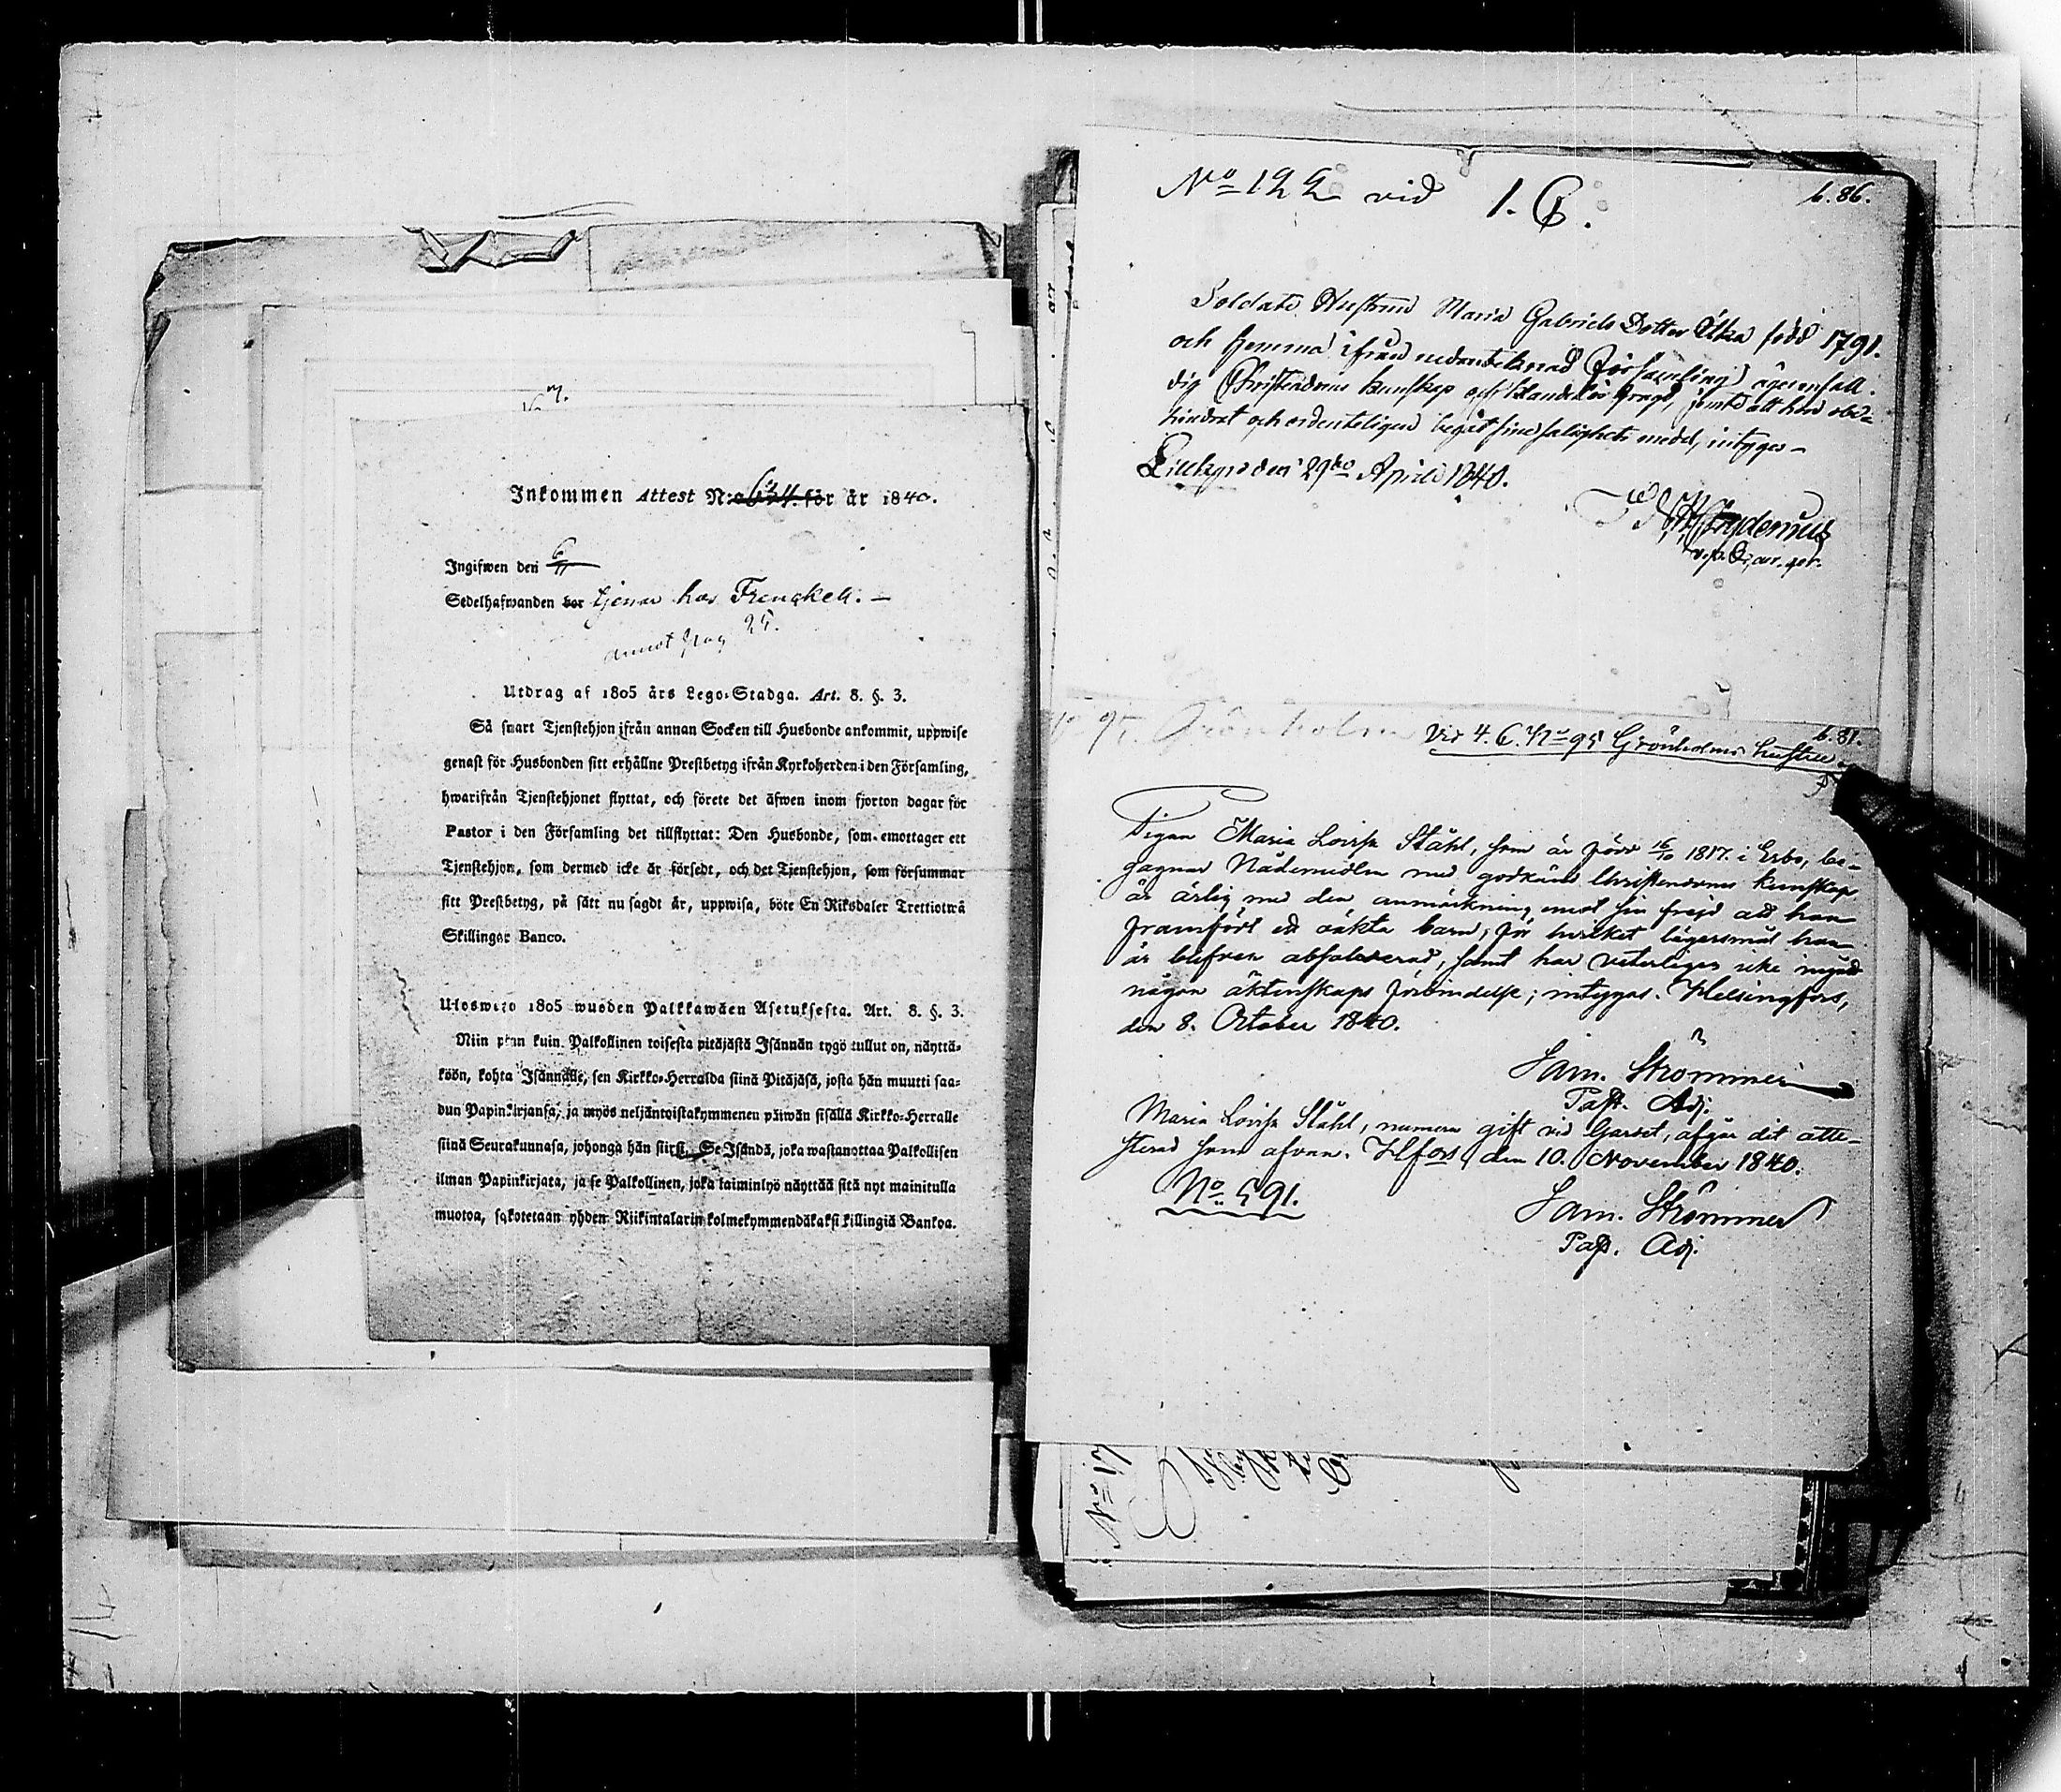 Inkommen Attest N:o 634. för år 1840.
Ingifwen den 6/11
Sedelhafwanden bor tjenar hos Frenckell. –
annot pag 25.
Utdrag af 1805 års Lego-Stadga. Art. 8. §. 3.
Så snart Tjenstehjon ifrån annan Socken till Husbonde ankommit, uppwise
genast för Husbonden sitt erhållne Prestbetyg ifrån Kyrkoherden i den Församling,
hwarifrån Tjenstehjonet flyttat, och förete det äfwen inom fjorton dagar för
Pastor i den Församling det tillflyttat: Den Husbonde, som emottager ett
Tjenstehjon, som dermed icke är försedt, och det Tjenstehjon, som försummar
sitt Prestbetyg, på sätt nu sagdt är, uppwisa, böte En Riksdaler Trettiotwå
Skillingar Banco.
Uloswето 1805 wuoden Palkkawäen Asetuksesta. Art. 8. §. 3.
Niin pian kuin Palkollinen toisesta pitäjästä Isännän tygö tullut on, näyttä-
köön, kohta Isännälle, sen Kirkko-Herralda siinä Pitäjäsä, josta hän muutti saa-
dun Papinkirjansa, ja myös neljäntoistakymmenen päiwän sisällä Kirkko-Herralle
siinä Seurakunnasa, johonga hän siirsi. Se Isändä, joka wastanottaa Palkollisen
ilman Papinkirjata, ja se Palkollinen, joka laiminlyö näyttää sitä nyt mainitulla
muotoa, sakotetaan yhden Riikintalarin kolmekymmendäkaksi killingiä Bankoa.
No 122 vid 1. C.
b. 86.
Soldats Hustrun Maria Gabriels Dotter född 1791.
och hemma ifrån nedantecknad Församling, äger enfall-
dig Christendoms kunskap och frägd, jemte att hon obe-
hindrat och ordenteligen begått sine salighets medel, intygas –
Lillkyro den 29de April 1840.
b. 81.
Vid 4. C. No 95 Grönholms hustru
Pigan Maria Lovisa Ståhl, som är född 16/10 1817. i Esbo, be-
gagnar Nådemedlen med godkänd Christendoms kunskap
är ärlig med den anmärkning emot sin frejd att hon
framfört ett oäkta barn, för hvilket lägersmål hon
är blefven absolverad, samt har veterligen icke ingått
någon äktenskaps förbindelse; intygas. Helsingfors,
den 8. October 1840.
Sam. Strömmer
Past. Adj.
Maria Lovisa Ståhl, numera gift vid Gardet, afgår det atte-
sterad som ofvan. H:fors den 10. November 1840.
No 591.
Sam. Strömmer
Past. Adj.